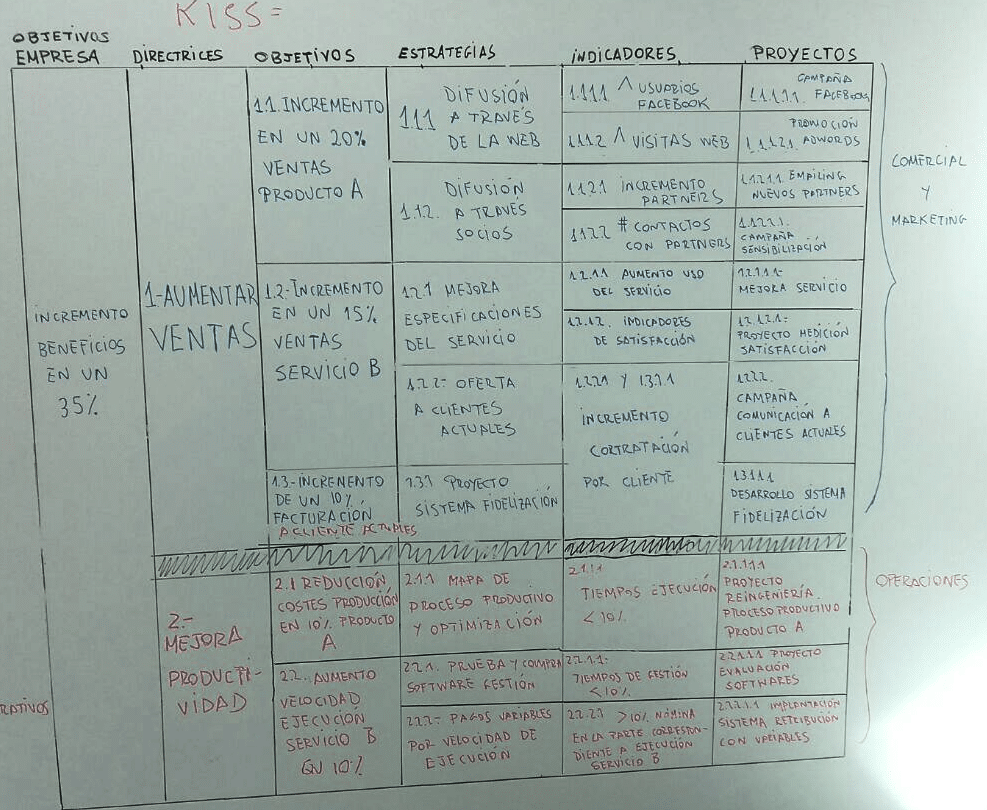 KISS=
OBJETIVOS
EMPRESA
DIRECTRICES
OBJETIVOS
ESTRATEGIAS
INDICADORES
PROYECTOS
INCREMENTO
BENEFICIOS
EN UN
35%
1-AUMENTAR
VENTAS
1.1. INCREMENTO
EN UN 20%
VENTAS
PRODUCTO A
1.1.1 DIFUSIÓN
A TRAVÉS
DE LA WEB
1.1.1.1 ^ USUARIOS
FACEBOOK
1.1.1.1.1. CAMPAÑA
FACEBOOK
1.1.1.2 ^ VISITAS WEB
PROMOCIÓN
1.1.1.2.1. ADWORDS
1.1.2. DIFUSIÓN
A TRAVÉS
SOCIOS
1.1.2.1 INCREMENTO
PARTNERS
1.1.2.1.1 EMPILING
NUEVOS PARTNERS
1.1.2.2 # CONTACTOS
CON PARTNERS
1.1.2.2.1.
CAMPAÑA
SENSIBILIZACIÓN
1.2.- INCREMENTO
EN UN 15%
VENTAS
SERVICIO B
1.2.1 MEJORA
ESPECIFICACIONES
DEL SERVICIO
1.2.1.1 AUMENTO USO
DEL SERVICIO
1.2.1.1.1-
MEJORA SERVICIO
1.2.1.2. INDICADORES
DE SATISFACCIÓN
1.2.1.2.1-
PROYECTO MEDICIÓN
SATISFACCIÓN
1.2.2- OFERTA
A CLIENTES
ACTUALES
1.2.2.1 Y 1.3.2.1
INCREMENTO
CORTRATACIÓN
POR CLIENTE
1.2.2.2.
CAMPAÑA
COMUNICACIÓN A
CLIENTES ACTUALES
1.3.- INCREMENTO
DE UN 10%
FACTURACIÓN
A CLIENTE ACTUALES
1.3.1 PROYECTO
SISTEMA FIDELIZACIÓN
1.3.1.1.1
DESARROLLO SISTEMA
FIDELIZACIÓN
COMERCIAL
Y
MARKETING
2.-
MEJORA
PRODUCTI-
VIDAD
2.1 REDUCCIÓN
COSTES PRODUCCIÓN
EN 10% PRODUCTO
A
2.1.1 MAPA DE
PROCESO PRODUCTIVO
Y OPTIMIZACIÓN
2.1.1.1
TIEMPOS EJECUCIÓN
<10%.
2.1.1.1.1
PROYECTO
REINGENIERÍA.
PROCESO PRODUCTIVO
PRODUCTO A
2.2.. AUMENTO
VELOCIDAD
EJECUCIÓN
SERVICIO B
EN 10%
2.2.1. PRUEBA Y COMPRA
SOFTWARE GESTIÓN
2.2.1.1-
TIEMPOS DE GESTIÓN
<10%
2.2.1.1.1 PROYECTO
EVALUACIÓN
SOFTWARES
2.2.2- PAGOS VARIABLES
POR VELOCIDAD DE
EJECUCIÓN
2.2.2.1 >10% NÓMINA
EN LA PARTE CORRESPON-
DIENTE A EJECUCIÓN
SERVICIO B
2.2.2.1.1 IMPLANTACIÓN
SISTEMA RETRIBUCIÓN
CON VARIABLES
OPERACIONES
RATIVOS